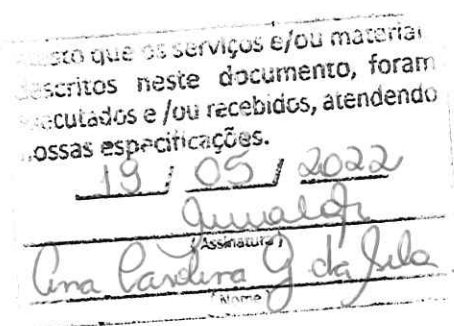 que os serviços e/ou material
descritos neste documento, foram
executados e /ou recebidos, atendendo
nossas especificações.
19 / 05 / 2022
(Assinatura)
Ana Carolina G da Silva
(Nome)